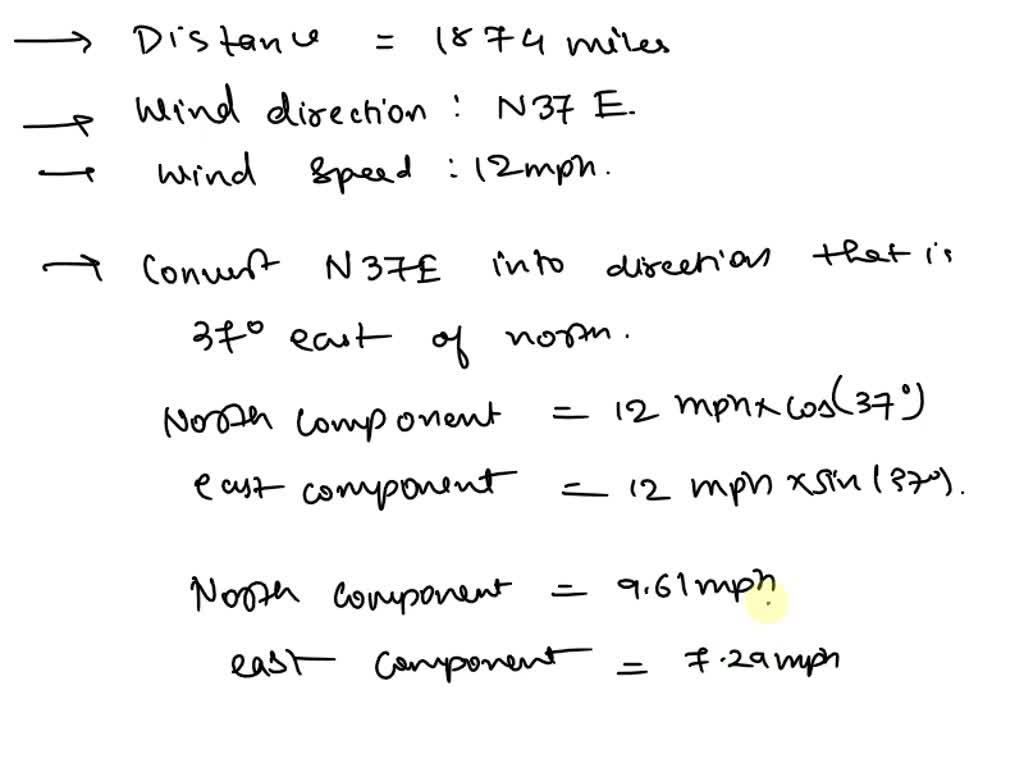 → Distance = 1874 miles
→ Wind direction : N37 E.
→ Wind speed : 12mph.
→ Convert N37E into direction that is
37° east of north.
North component = 12 mph x cos(37°)
east component = 12 mph x sin(37°).
North component = 9.61mph
east component = 7.29mph